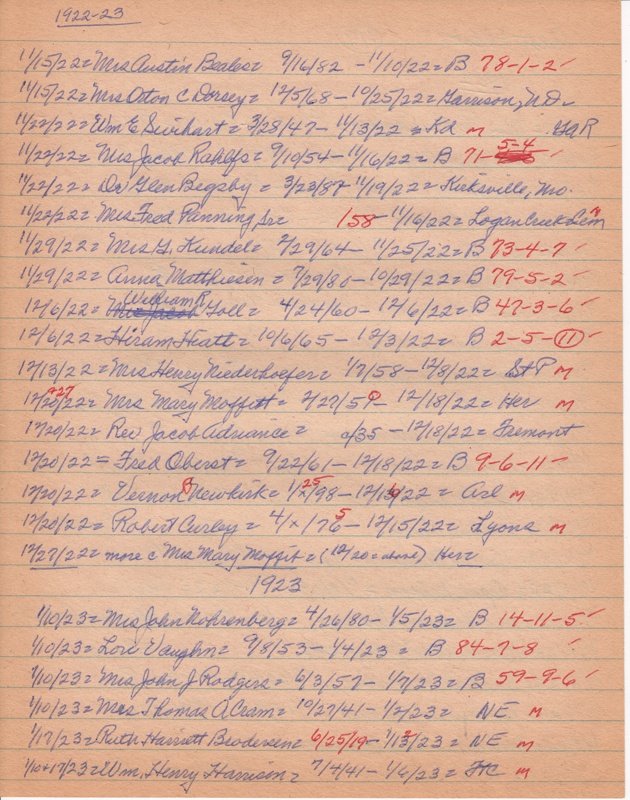 1922-23
11/15/22 = Mrs Austin Beales = 9/16/82 - 11/10/22 = B 78-1-2 ✓
11/15/22 = Mrs Orton C Dorsey = 12/5/68 - 10/25/22 = Garrison, ND
11/22/22 = Wm E Swihart = 3/28/47 - 11/13/22 = Kd m GAR
11/22/22 = Mrs Jacob Rahlfs = 9/10/54 - 11/16/22 = B 71-5-4 ✓
11/22/22 = Dr Glen Bigsby = 3/23/87 - 11/19/22 = Kirksville, Mo.
11/22/22 = Mrs Fred Panning, Sr = 158 - 11/16/22 = Logan Creek Cem m
11/29/22 = Mrs G. Kundel = 2/29/64 - 11/25/22 = B 73-4-7 ✓
11/29/22 = Anna Matthiesen = 7/29/80 - 10/29/22 = B 79-5-2 ✓
12/6/22 = William R Toll = 4/24/60 - 12/6/22 = B 47-3-6 ✓
12/6/22 = Hiram Hiatt = 10/6/65 - 12/3/22 = B 2-5-11 ✓
12/13/22 = Mrs Henry Niederhoefer = 1/7/58 - 12/8/22 = St P m
12/20/22 +27 = Mrs Mary Moffett = 2/27/59 - 12/18/22 = Her m
12/20/22 = Rev Jacob Adriance = c/35 - 12/18/22 = Fremont
12/20/22 = Fred Oberst = 9/22/61 - 12/18/22 = B 9-6-11 ✓
12/20/22 = Vernon B Newkirk = 1/25/98 - 12/16/22 = Arl m
12/20/22 = Robert Curley = 4/x/75 - 12/15/22 = Lyons m
12/27/22 = more c Mrs Mary Moffit = (12/20 = above) Herr
1923
1/10/23 = Mrs John Nohrenberg = 4/26/80 - 1/5/23 = B 14-11-5 ✓
1/10/23 = Lori Vaughn = 9/8/53 - 1/4/23 = B 84-7-8 ✓
1/10/23 = Mrs John J Rodgers = 6/3/57 - 1/7/23 = B 59-9-6 ✓
1/10/23 = Mrs Thomas A Cram = 10/27/41 - 1/2/23 = NE m
1/17/23 = Ruth Harriett Brodersen = 6/25/19 - 1/12/23 = NE m
1/10+17/23 = Wm. Henry Harrison = 7/4/41 - 1/6/23 = m